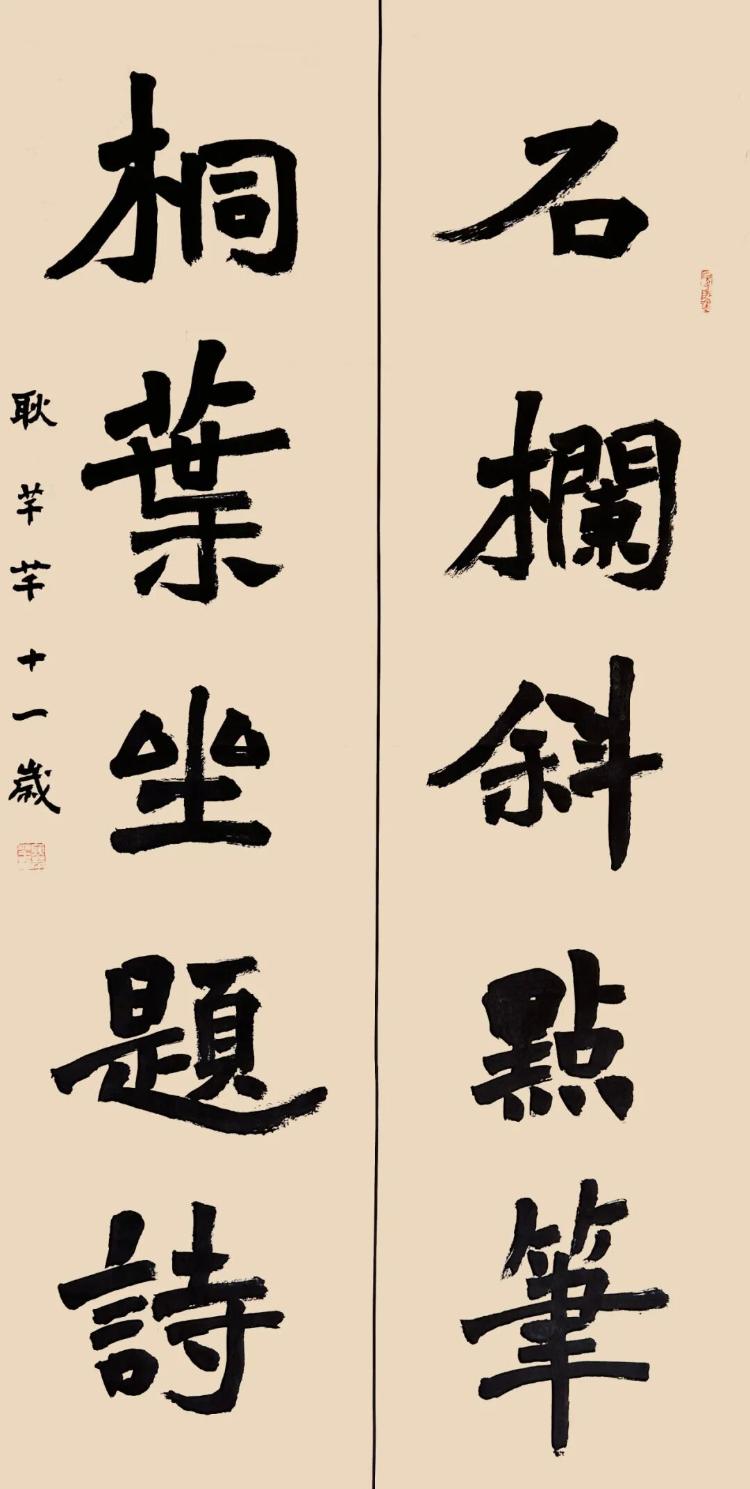 石欄斜點筆
桐葉坐題詩
耿芊芊十一歲